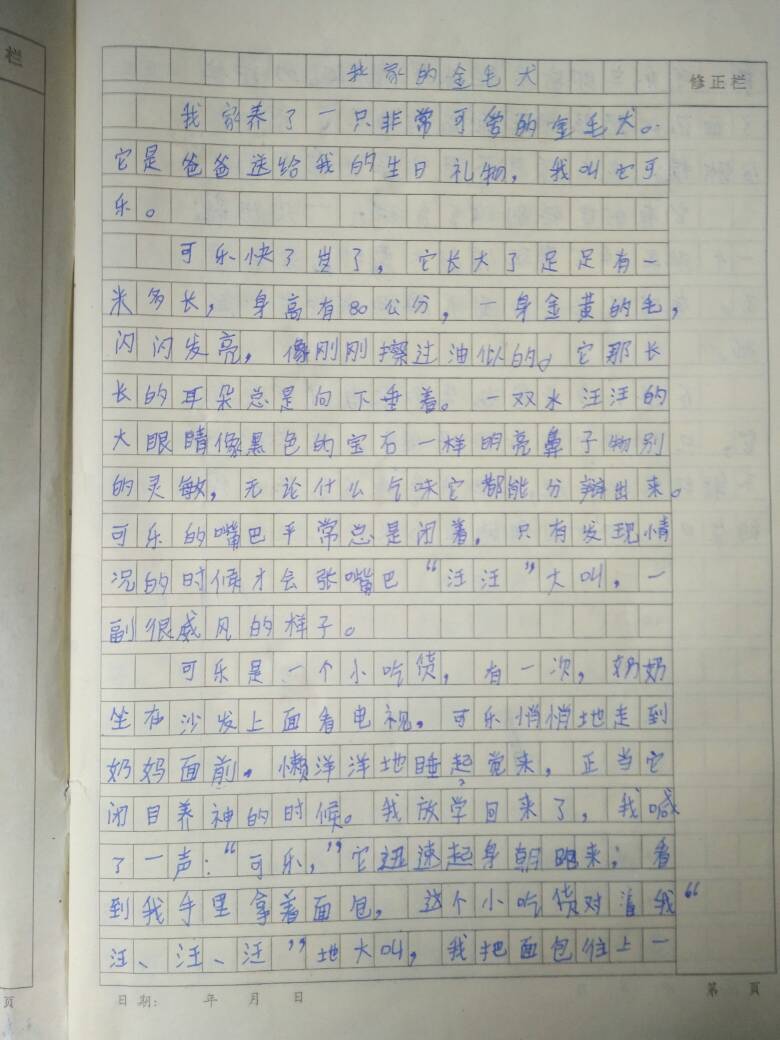 栏
修正栏
我家的金毛犬
我家养了一只非常可爱的金毛犬。
它是爸爸送给我的生日礼物，我叫它可
乐。
可乐快了岁了，它长大了足足有一
米多长，身高有80公分，一身金黄的毛，
闪闪发亮，像刚刚擦过油似的。它那长
长的耳朵总是向下垂着。一双水汪汪的
大眼睛像黑色的宝石一样明亮鼻子物别
的灵敏，无论什么气味它都能分辩出来。
可乐的嘴巴平常总是闭着，只有发现情
况的时候才会张嘴巴“汪汪”大叫，一
副很威风的样子。
可乐是一个小吃货，有一次，奶奶
坐在沙发上面看电视，可乐悄悄地走到
奶妈面前，懒洋洋地睡起觉来，正当它
闭目养神的时候。我放学回来了，我喊
了一声：“可乐，”它迅速起身朝跑来；看
到我手里拿着面包，这个小吃货对着我“
汪、汪、汪”地大叫，我把面包往上一
日期： 年 月 日
第 页
页